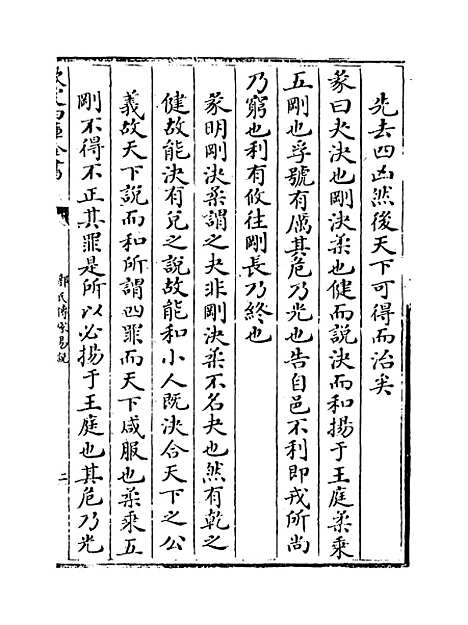 先去四凶然後天下可得而治矣
彖曰夬決也剛決柔也健而說決而和揚于王庭柔乘
五剛也孚號有厲其危乃光也告自邑不利即戎所尚
乃窮也利有攸往剛長乃終也
彖明剛決柔謂之夬非剛決柔不名夬也然有乾之
健故能決有兌之說故能和小人既決合天下之公
義故天下說而和所謂四罪而天下咸服也柔乘五
剛不得不正其罪是所以必揚于王庭也其危乃光
欽定四庫全書
郭氏傳家易說
二